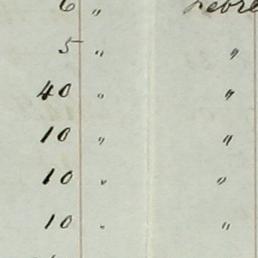 6 "
5 " "
40 " "
10 " "
10 " "
10 " "